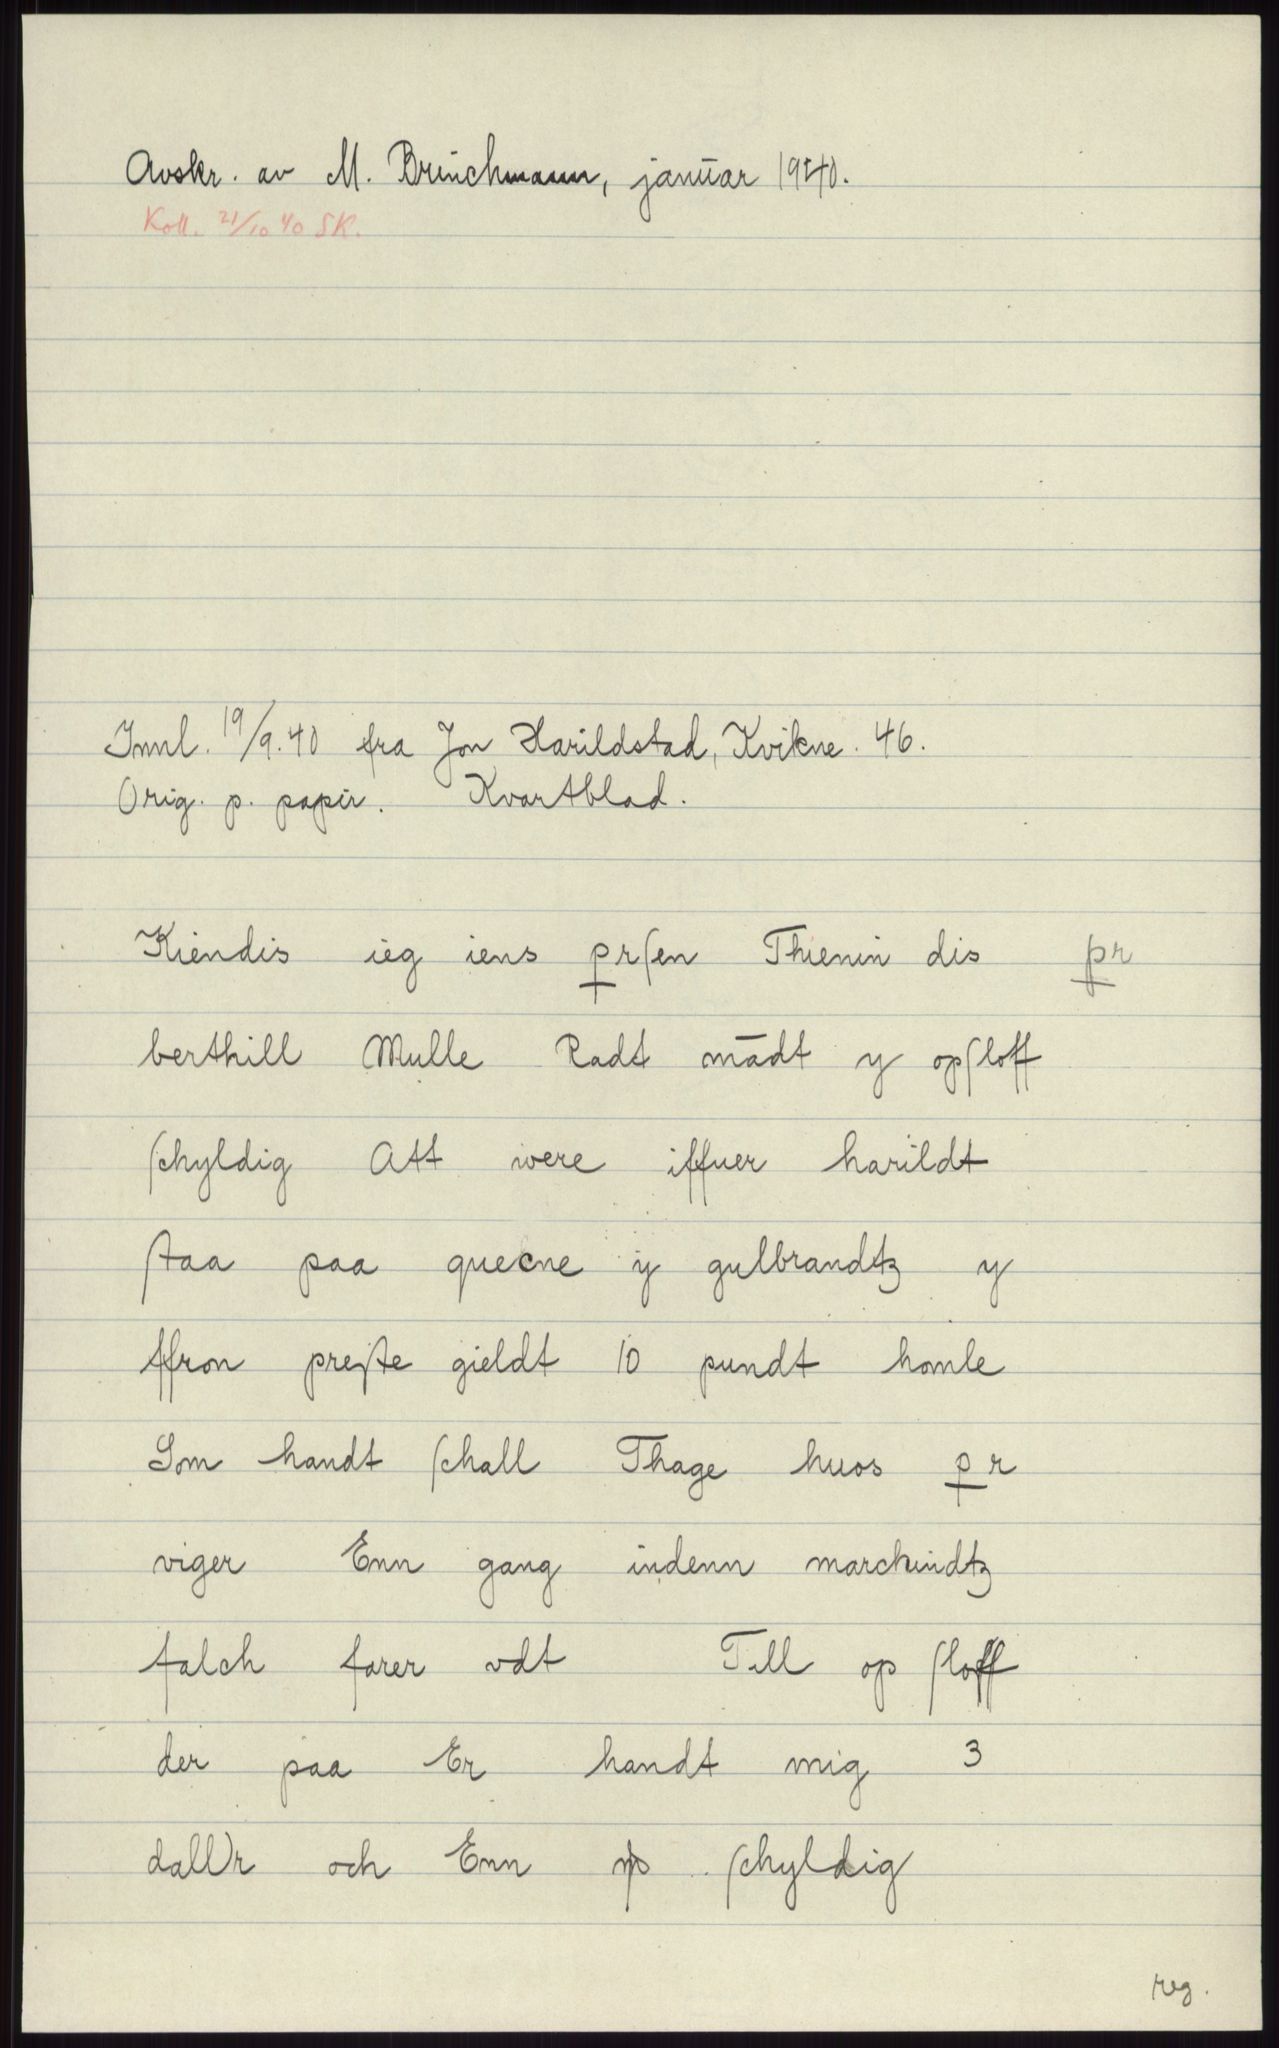 Avskr. av M. Brinchmann, januar 1940.
Koll. 21/10 40 SK.
Innl. 19/9.40 fra Jon Harildstad, Kvikne. 46.
Orig. p. papir. Kvartblad.
Kiendis ieg iens prſen Thienin dis pr
berthill Mulle Radt mādt y opſloff
ſchyldig Att were iffuer harildt
ſtaa paa quecne ÿ gulbrandtz y
ffron preſte gieldt 10 pundt homle
Som handt ſchall Thage huos pr
viger Enn gang indenn marckindtz
falch farer vdt Till op ſloff
der paa Er handt mig 3
dallr och Enn ſchyldig
reg.